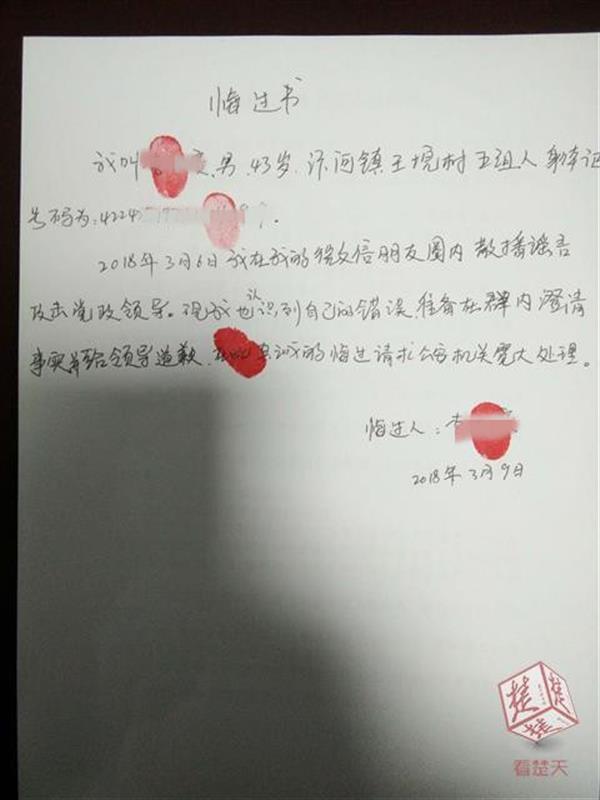 悔过书
我叫 男、43岁、汴河镇王垸村五组人 身本证
号码为:4224
2018年3月6日我在我的微信朋友圈内散播谣言
攻击党政领导。现我也认识到自己的错误 准备在群内澄清
事实并给领导道歉、 诚的悔过请求公安机关宽大处理。
悔过人:
2018年3月9日
楚
看楚天